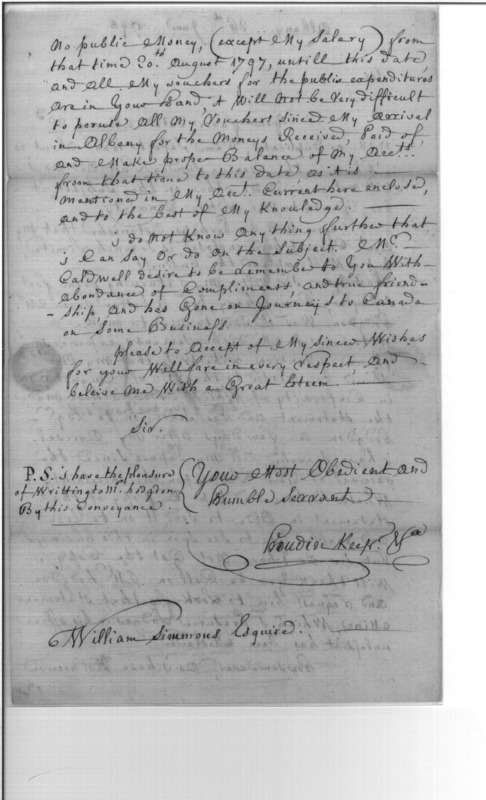 No public Money, (except My Salary) from
that time 20. August 1797, untill this date
and all My vouchers for the public expenditures
are in Your hand, it Will Not be Very difficult
to peruse All My Vouchers Sinced My Arrival
in Albany for the Moneys Received, Paid of,
and Make proper Balance of My Acc.ts
from that time to this date as it is
Mentioned in My Acc.t Current here enclosed,
and to the best of My Knowledge.
j do Not Know Any thing further that
j Can Say Or do on the Subject. Mr.
Caldwell desire to be remember to You With
abondance of Compliments, and true friend-
-ship, and has Gone on Journeys to Canada
on Some Business
please to Accept of My Sincer Wishes
for your Wellfare in every respect, and
beleive Me With a Great Esteem
Sir.
P.S. j have the pleasure
of Writting to Mr. hodgdon
By this Conveyance.
Your Most Obedient and
humble Servant
William Simmons Esquire.